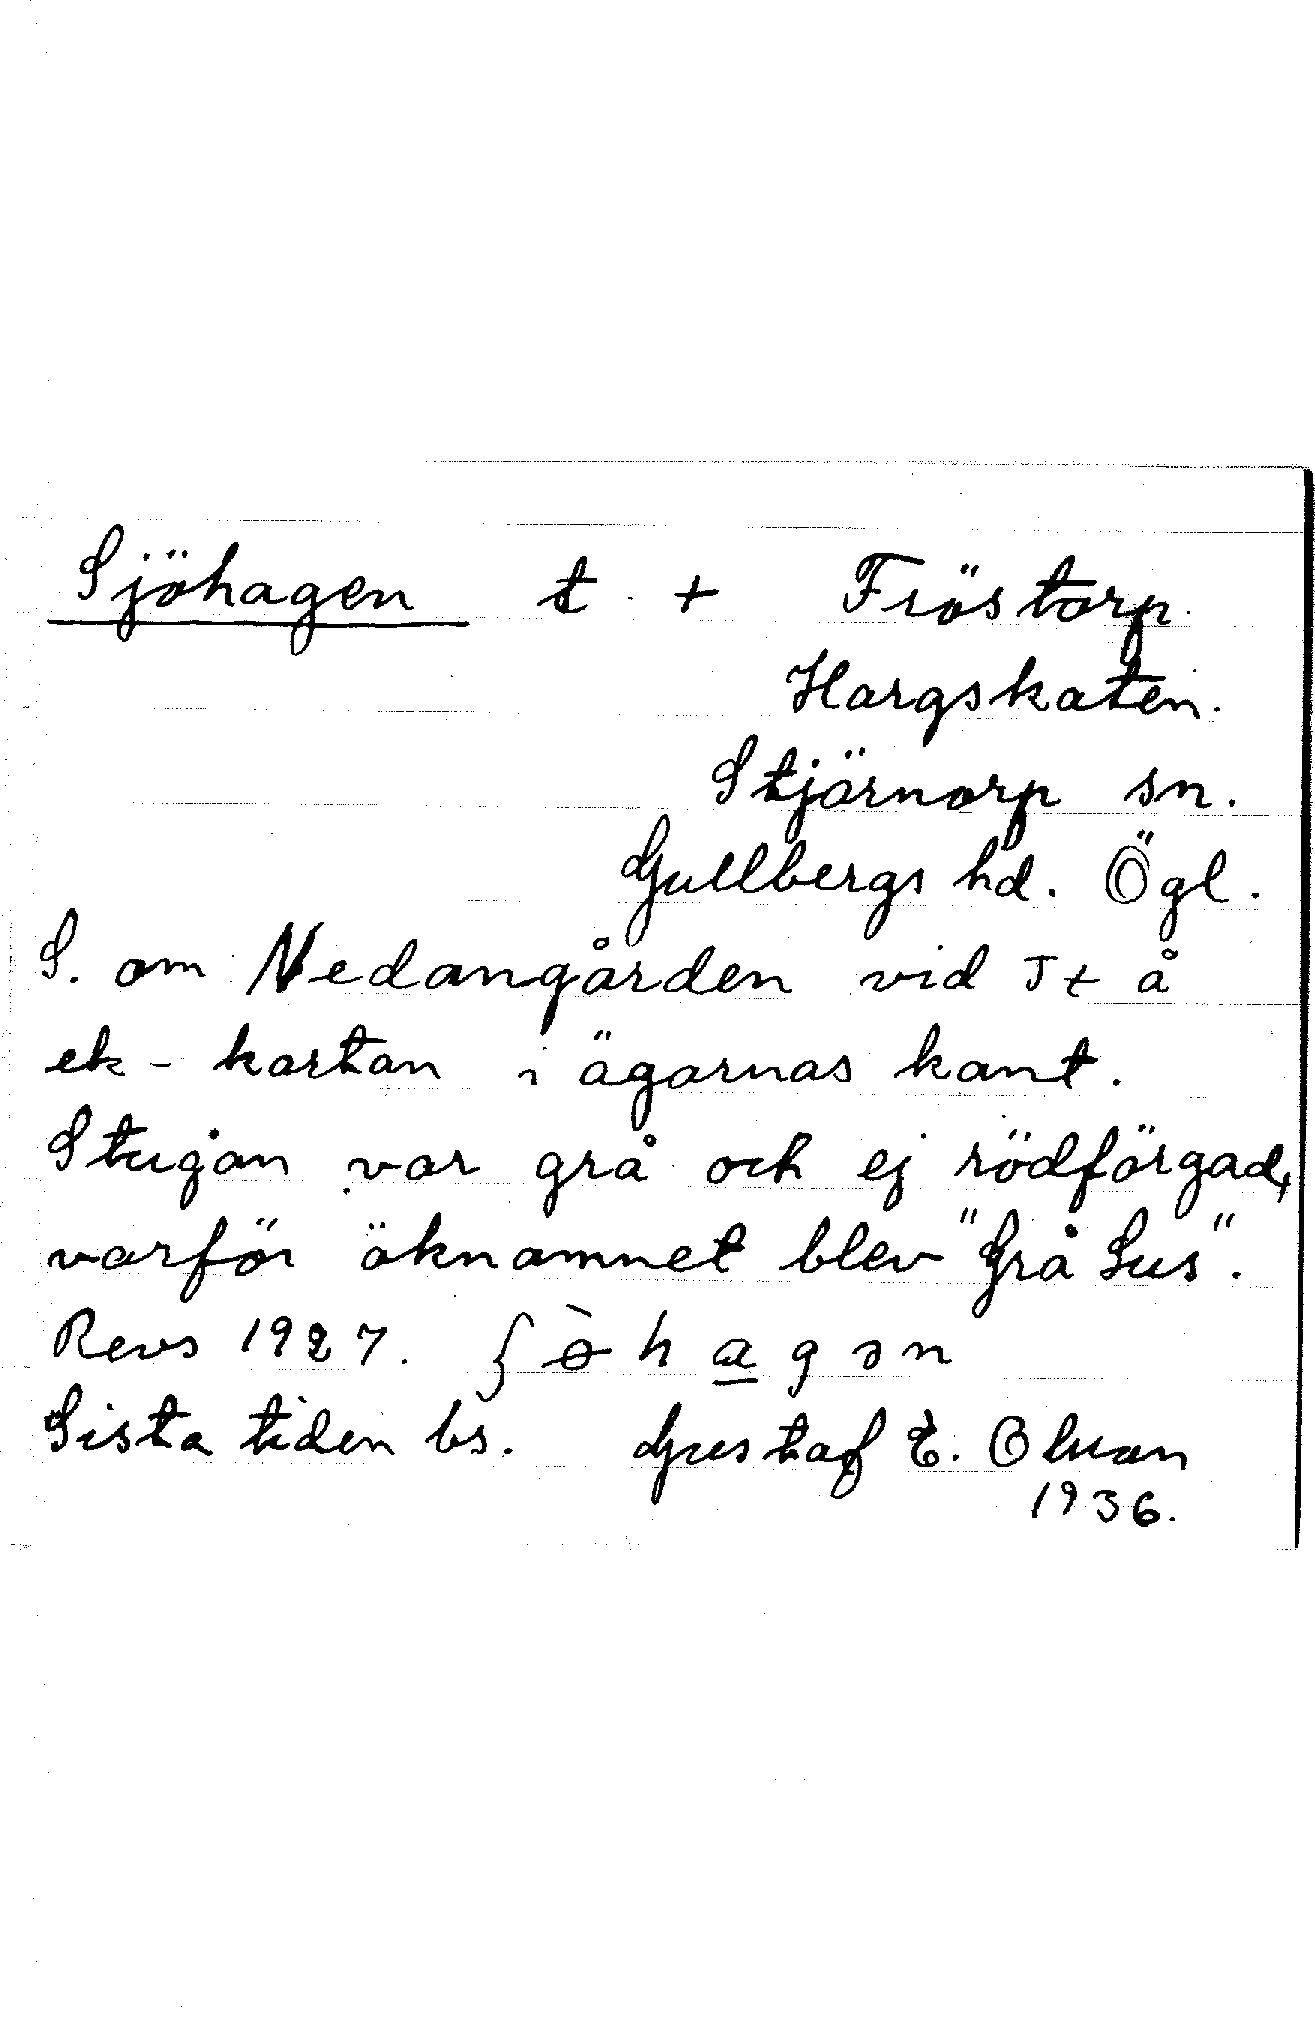 Sjöhagen t + Fröstorp.
Hargskaten.
Stjärnorp sn.
Gullbergs hd. Ögl.
S. om Nedangården vid Jt å
ek-kartan i ägornas kant.
Stugan var grå och ej rödfärgad,
varför öknamnet blev "Grå Lus".
Revs 1927. ʃɵ̀hagən
Sista tiden bs. Gustaf E. Olsson
1936.